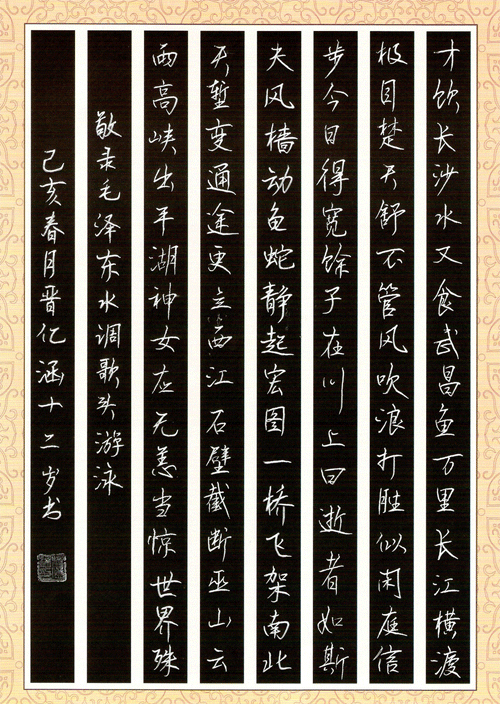 才饮长沙水又食武昌鱼万里长江横渡
极目楚天舒不管风吹浪打胜似闲庭信
步今日得宽馀子在川上曰逝者如斯
夫风樯动龟蛇静起宏图一桥飞架南北
天堑变通途更立西江石壁截断巫山云
雨高峡出平湖神女应无恙当惊世界殊
敬录毛泽东水调歌头游泳
己亥春月晋亿涵十二岁书